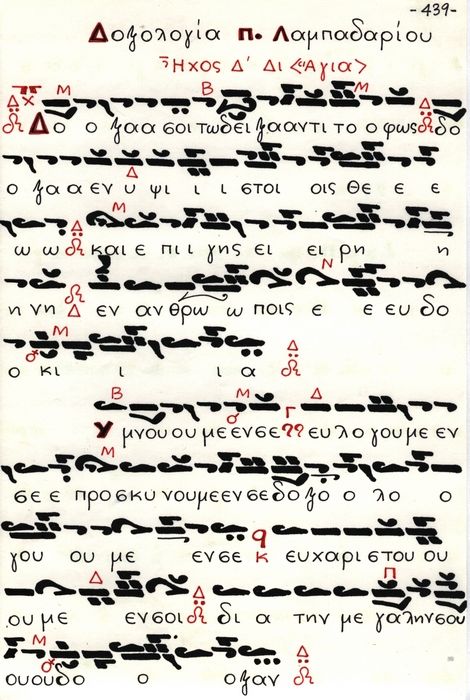 -439-
Δοξολογία π. Λαμπαδαρίου
Ἦχος Δ΄ Δι <Ἅγια>
Δο ο ξα α σοι τω δει ξα αν τι το ο φως δο
ο ξα α εν υ ψι ι ι στοι οις θε ε ε
ω ω και ε πι ι γης ει ει ρη η
η νη εν αν θρω ω ποις ε ε ευ δο
ο κι ι ι α
Υ μνου ου με εν σε ευ λο γου με εν
σε ε προ σκυ νου με εν σε δο ξο ο λο ο
γου ου με εν σε ευ χα ρι στου ου
ου με εν σοι δι α την με γα λην σου
ου ου δο ο ο ξαν